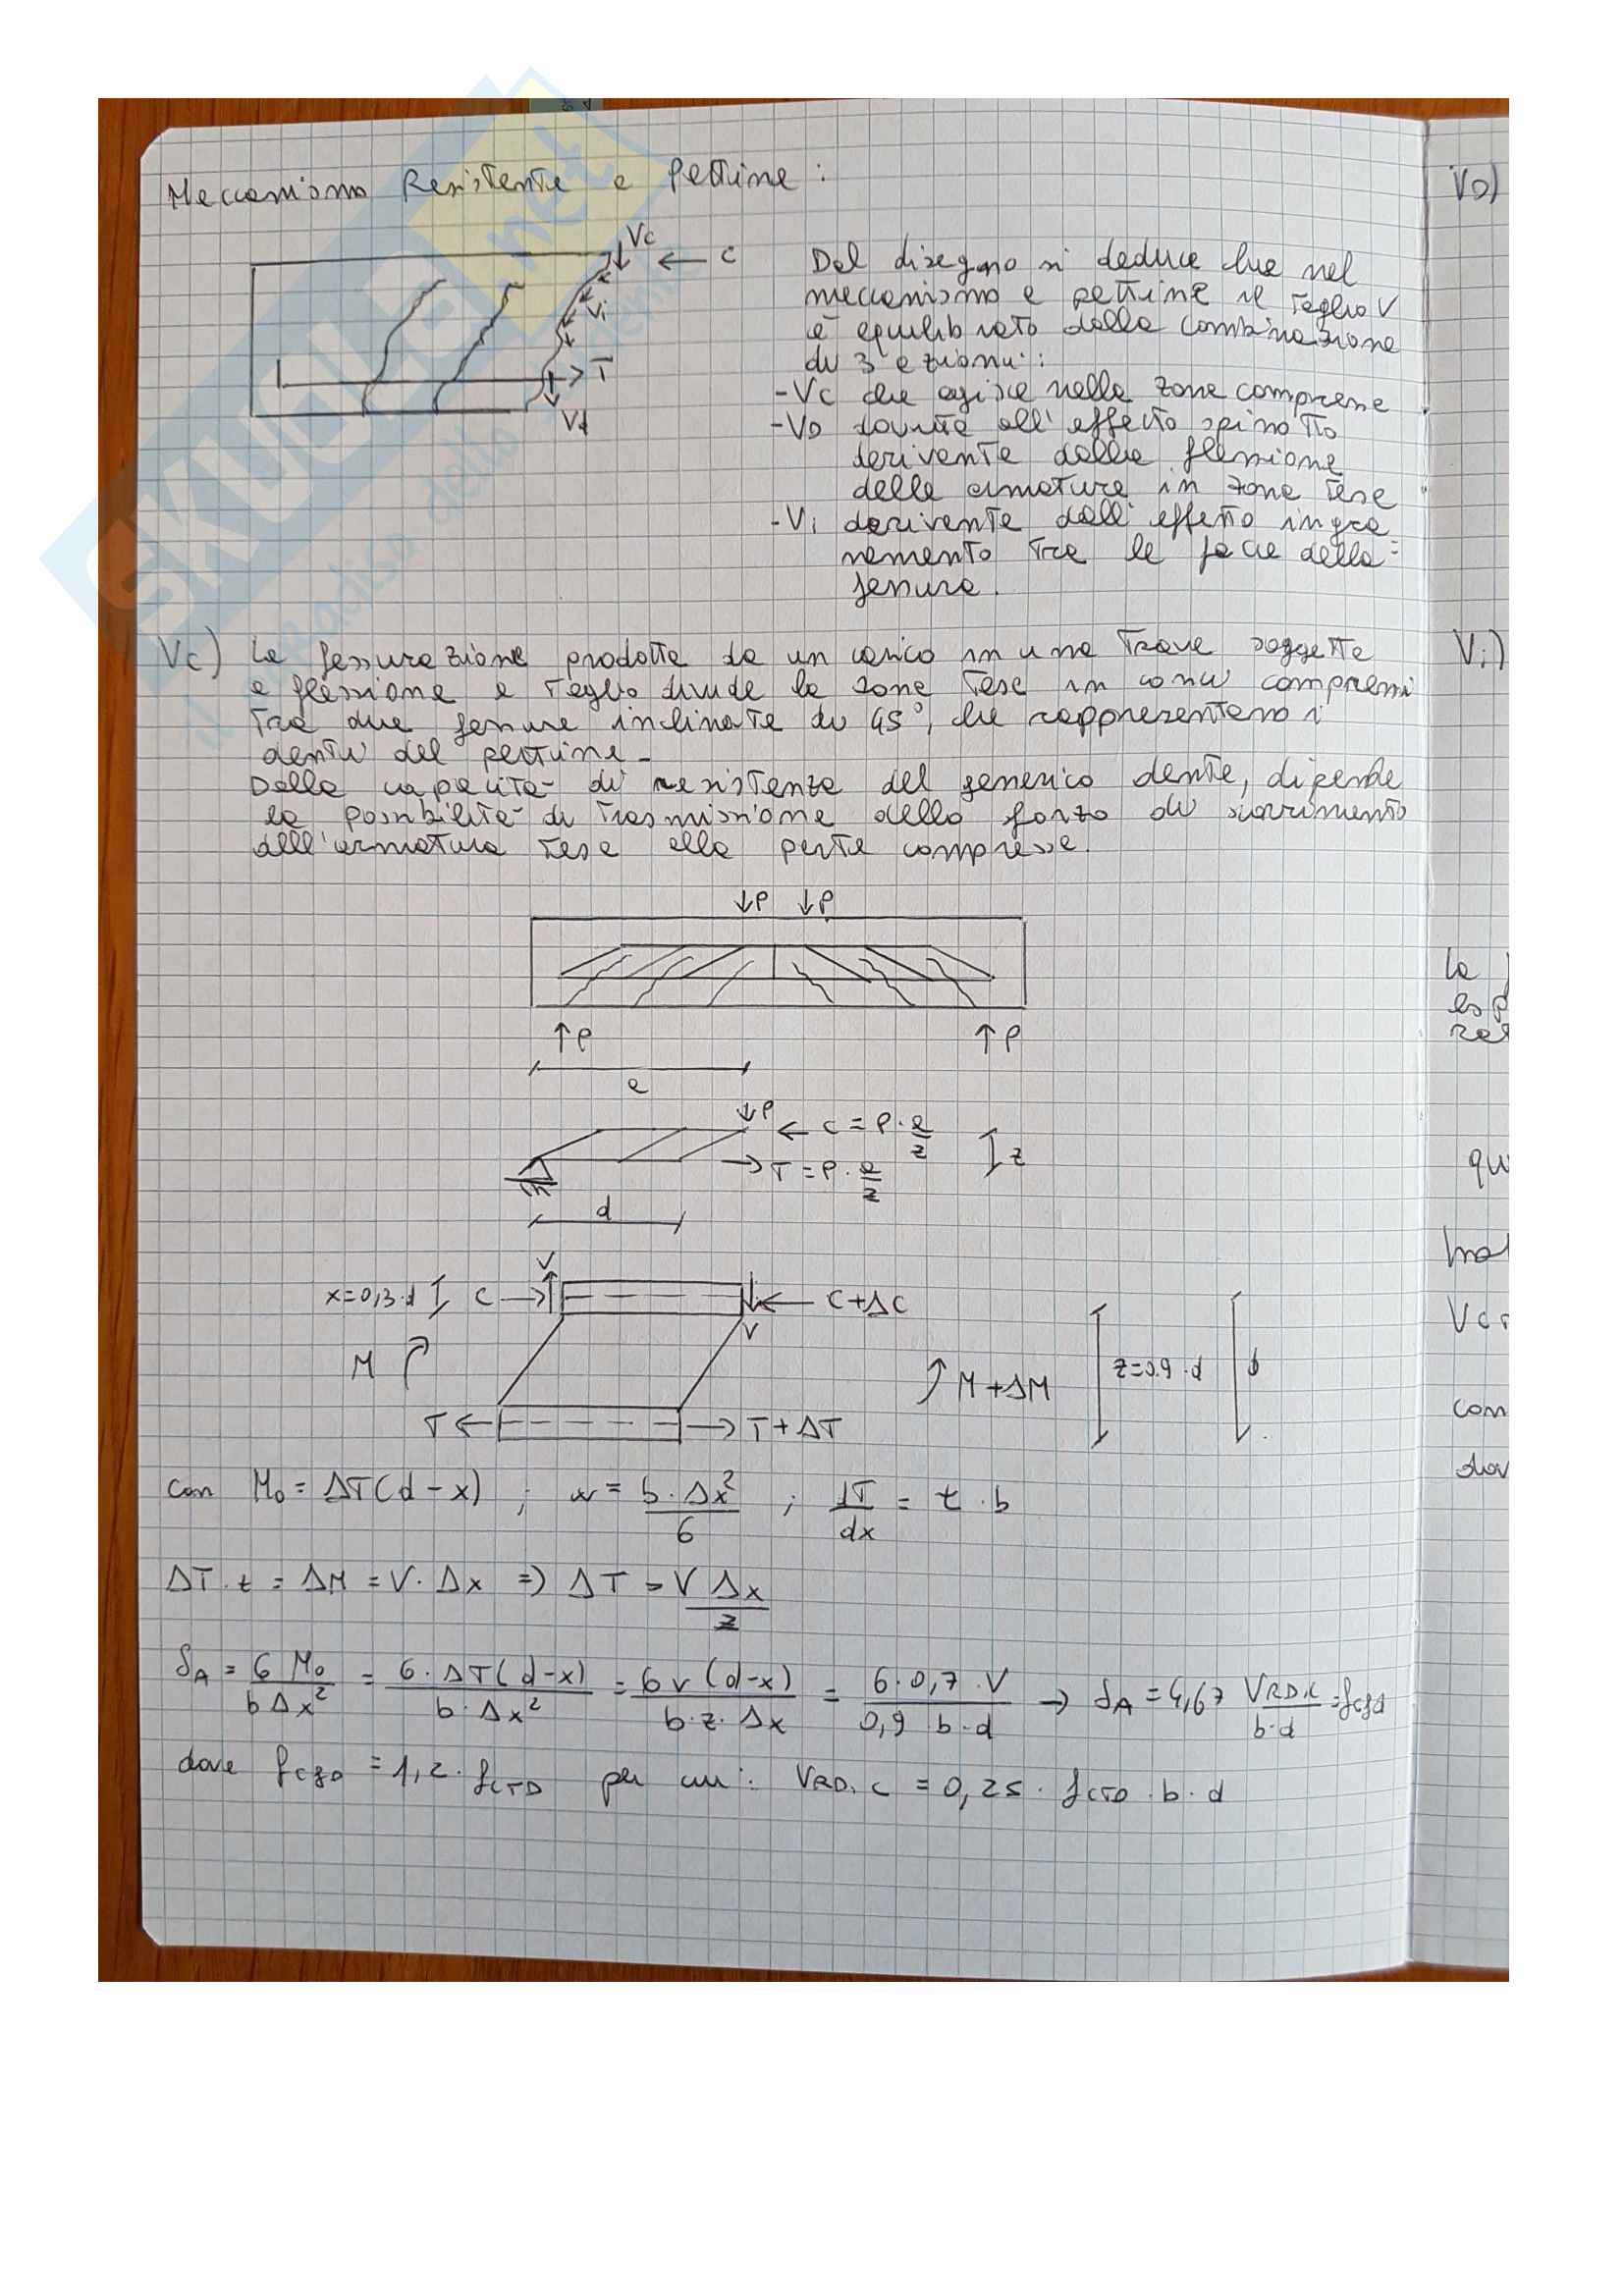 Meccanismo Resistente a Pettine:
Vc
← C
Vi
T
Vd
Dal disegno si deduce che nel
meccanismo a pettine il Taglio V
è equilibrato dalla combinazione
di 3 azioni:
- Vc che agisce nella zona compressa
- VD dovuta all'effetto spinotto
derivante dalla flessione
delle armature in zona Tesa
- Vi derivante dall'effetto ingra
namento Tra le facce della
fessura.
Vc) La fessurazione prodotta da un carico in una Trave soggetta
a flessione e Taglio divide la zona Tesa in conci compressi
Tra due fessure inclinate di 45°, che rappresentano i
denti del pettine.
Dalla capacità di resistenza del generico dente, dipende
la possibilità di Trasmissione dello sforzo di scorrimento
dall'armatura Tesa alla parte compressa.
↓P ↓P
↑P ↑P
a
↓P
← C = P · a/z
→ T = P · a/z
z
d
x=0,3·d
V
C →
← C+ΔC
V
M
M+ΔM
z=0.9·d
d
T ←
→ T+ΔT
con M0 = ΔT(d-x) ; w = b·Δx²/6 ; dT/dx = τ · b
ΔT·z = ΔM = V·Δx => ΔT = VΔx/z
δA = 6 M0/bΔx² = 6·ΔT(d-x)/b·Δx² = 6V(d-x)/b·z·Δx = 6·0,7·V/0,9 b·d → δA = 4,67 VRD,c/b·d = fcfd
dove fcfD = 1,2·fCTD per cui: VRD,c = 0,25·fCTD·b·d
VD)
Vi)
la
esp
res
qu
Vc
con
dov
SKUOLA.net